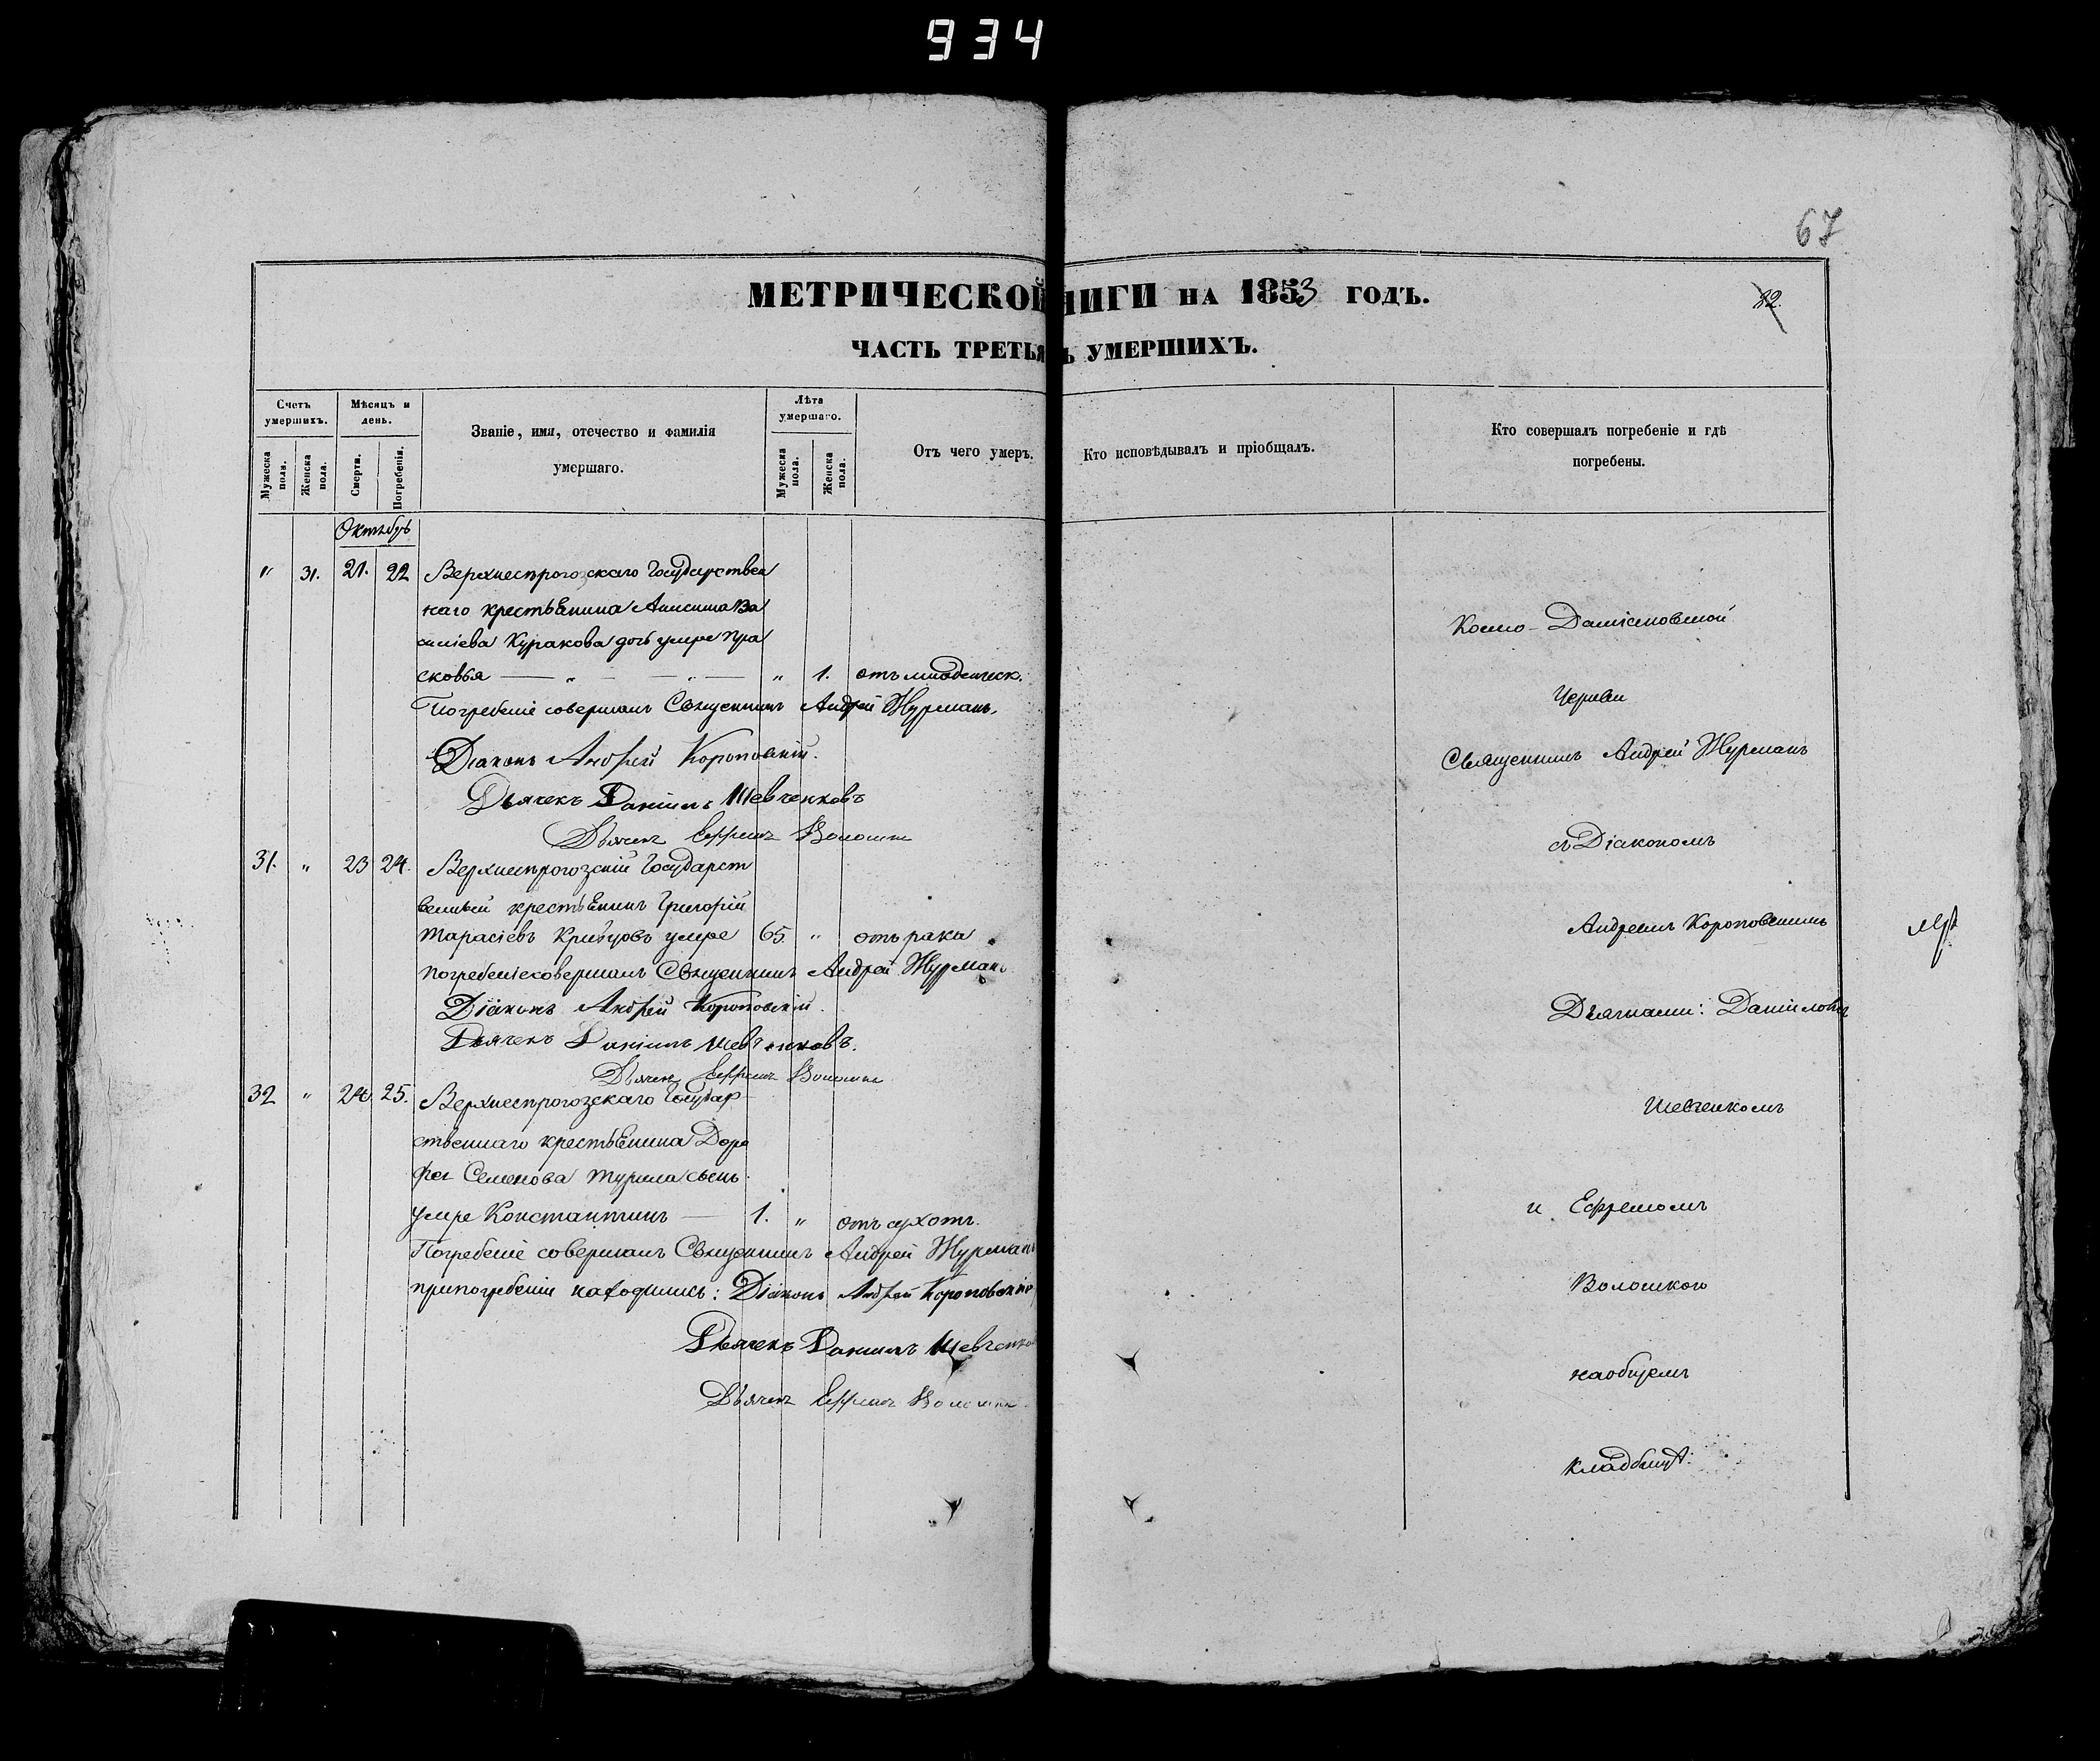 934
67
МЕТРИЧЕСКОЙ НИГИ НА 1853 ГОДЪ.
32.
ЧАСТЬ ТРЕТЬЯ Ъ УМЕРШИХЪ.
Счетъ умершихъ.
Мѣсяцъ и день.
Званіе, имя, отечество и фамилія умершаго.
Лѣта умершаго.
Отъ чего умеръ.
Кто исповѣдывалъ и пріобщалъ.
Кто совершалъ погребеніе и гдѣ погребены.
Мужеска пола.
Женска пола.
Смерти.
Погребенія.
Мужеска пола.
Женска пола.
Октябрь
" 31. 21. 22 Верхнесрогозскаго Государствен
наго крестьянина Анисима Ва
силіева Куракова дочь умре Пра
сковья — " — " — " 1. отъ младенческ.
Погребеніе совершалъ Священникъ Андрей Журманъ.
Діаконъ Андрей Короповскій.
Дьячекъ Даніилъ Шевченковъ
Дьячекъ Ефремъ Волошко
31. " 23 24. Верхнесрогозскій Государст
венный крестьянинъ Григорій
Тарасіевъ Кривцовъ умре 65. " отъ рака
погребеніе совершалъ Священникъ Андрей Журманъ
Діаконъ Андрей Короповскій.
Дьячекъ Даніилъ Шевченковъ.
Дьячекъ Ефремъ Волошко
32 " 24. 25. Верхнесрогозскаго Государ
ственнаго крестьянина Доро
фея Семенова Турила сынъ
умре Константинъ — 1. " отъ сухотъ.
Погребеніе совершалъ Священникъ Андрей Журманъ
при погребеніи находились: Діаконъ Андрей Короповскій
Дьячекъ Даніилъ Шевченко
Дьячекъ Ефремъ Волошко.
Космо-Даміановской
Церкви
Священникъ Андрей Журманъ
съ Діакономъ
Андреемъ Короповскимъ
Дьячками: Даніиломъ
Шевченкомъ
и Ефремомъ
Волошкою
на общемъ
кладбищѣ.